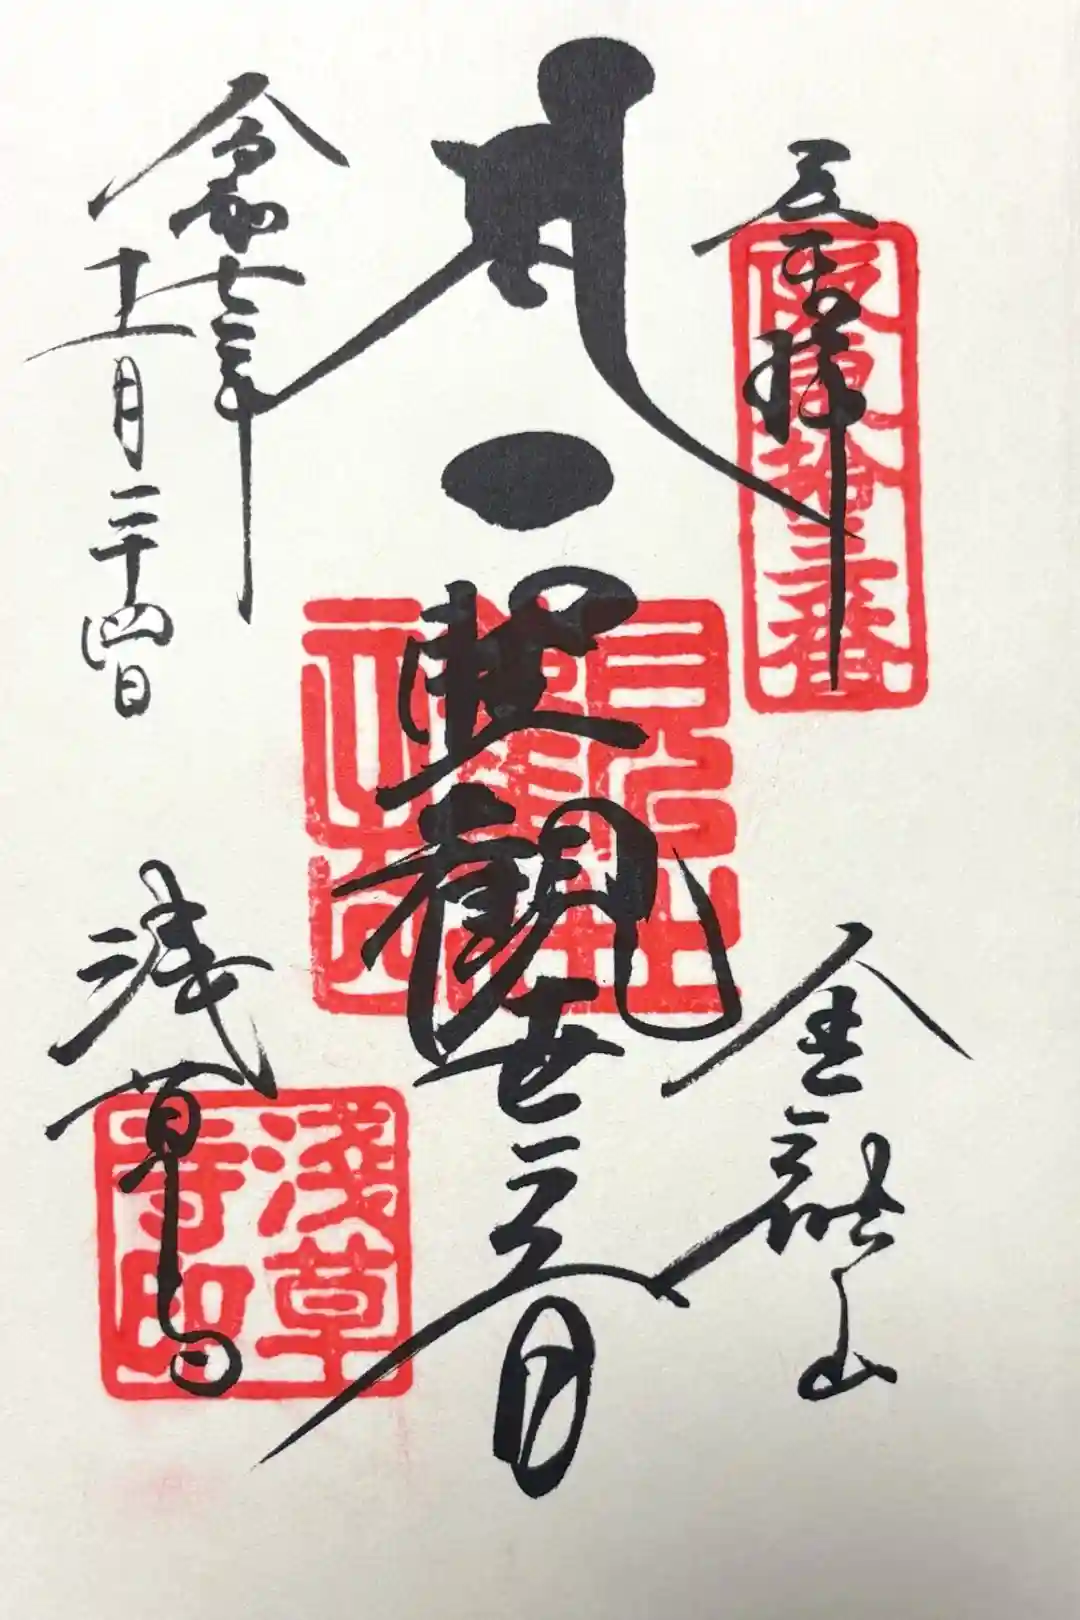 奉拝
坂東拾三番
金龍山
聖観世音
令和七年
十一月二十四日
浅草寺
淺草寺印